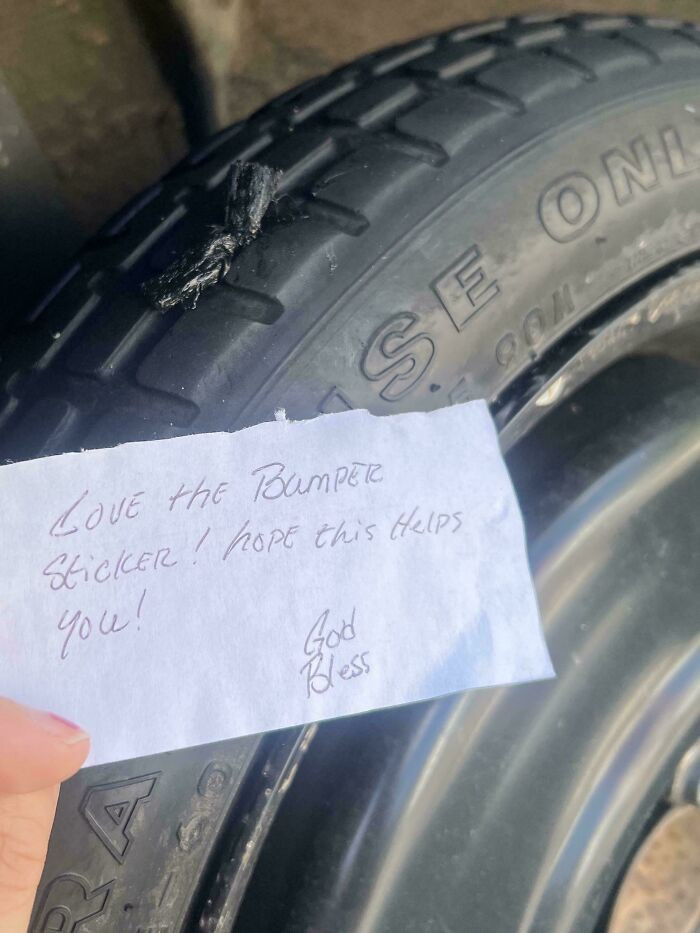 USE ONL
LOVE the BumPER
SticKER! hOPE this HelPs
you!
God
Bless
RA